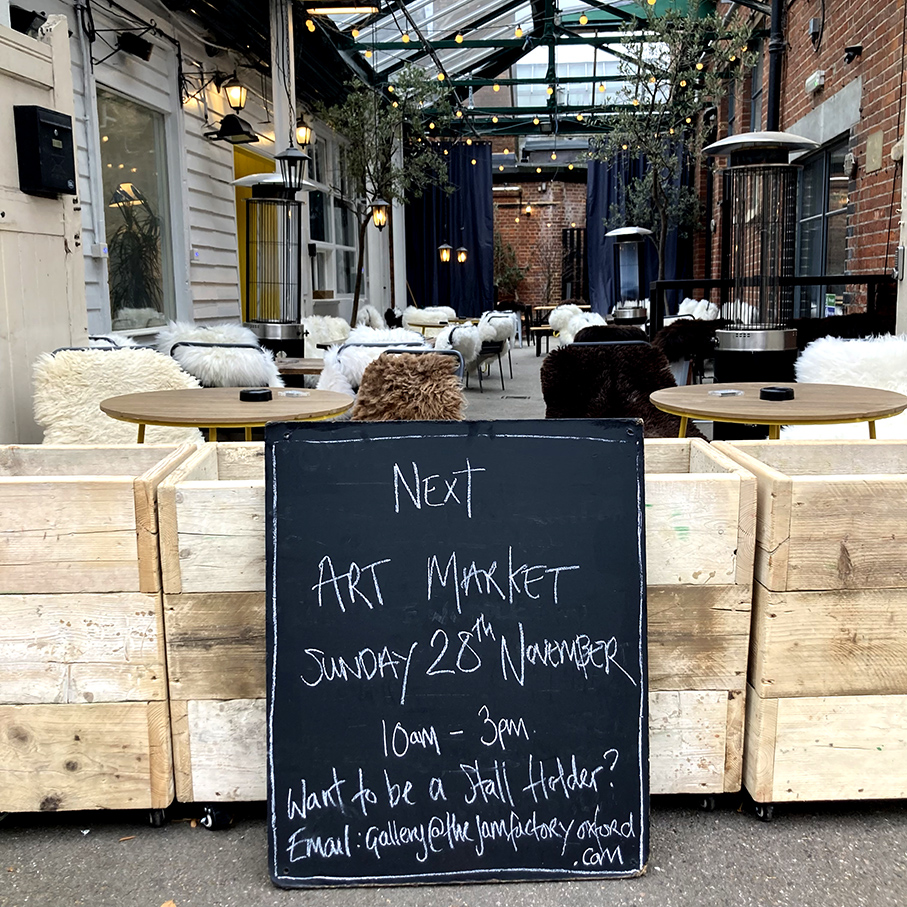 Next
Art Market
Sunday 28th November
10am - 3pm.
Want to be a Stall Holder?
Email: Gallery@thejamfactoryoxford
.com